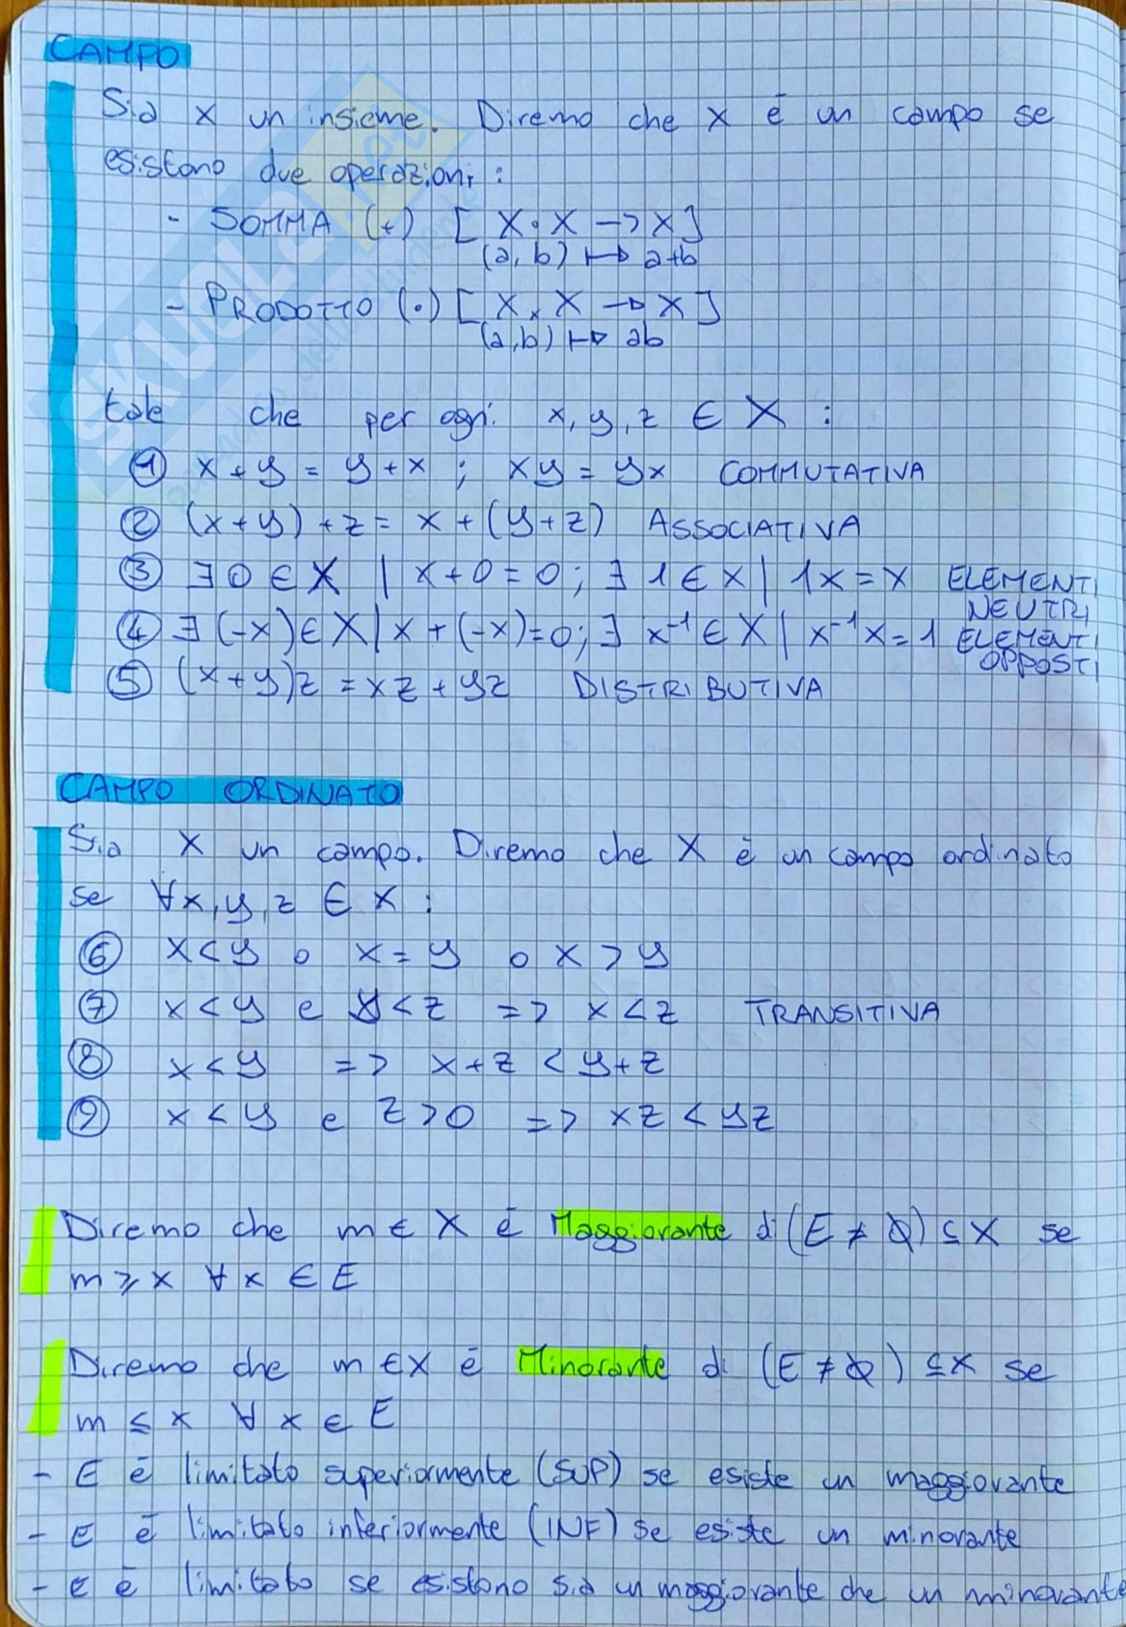 CAMPO
Sia X un insieme. Diremo che X è un campo se
esistono due operazioni:
- SOMMA (+) [X·X → X]
(a, b) ↦ a+b
- PRODOTTO (·) [X × X → X]
(a,b) ↦ ab
tale che per ogni x, y, z ∈ X :
① x + y = y + x ; xy = yx COMMUTATIVA
② (x+y) + z = x + (y+z) ASSOCIATIVA
③ ∃ 0 ∈ X | x+0 = 0 ; ∃ 1 ∈ X | 1x = x ELEMENTI
NEUTRI
④ ∃ (-x) ∈ X | x + (-x) = 0 ; ∃ x⁻¹ ∈ X | x⁻¹x = 1 ELEMENTI
OPPOSTI
⑤ (x+y)z = xz + yz DISTRIBUTIVA
CAMPO ORDINATO
Sia X un campo. Diremo che X è un campo ordinato
se ∀x, y, z ∈ X :
⑥ x < y o x = y o x > y
⑦ x < y e y < z => x < z TRANSITIVA
⑧ x < y => x + z < y + z
⑨ x < y e z > 0 => xz < yz
Diremo che m ∈ X è Maggiorante di (E ≠ ∅) ⊆ X se
m ≥ x ∀ x ∈ E
Diremo che m ∈ X è Minorante di (E ≠ ∅) ⊆ X se
m ≤ x ∀ x ∈ E
- E è limitato superiormente (SUP) se esiste un maggiorante
- E è limitato inferiormente (INF) se esiste un minorante
- E è limitato se esistono sia un maggiorante che un minorante